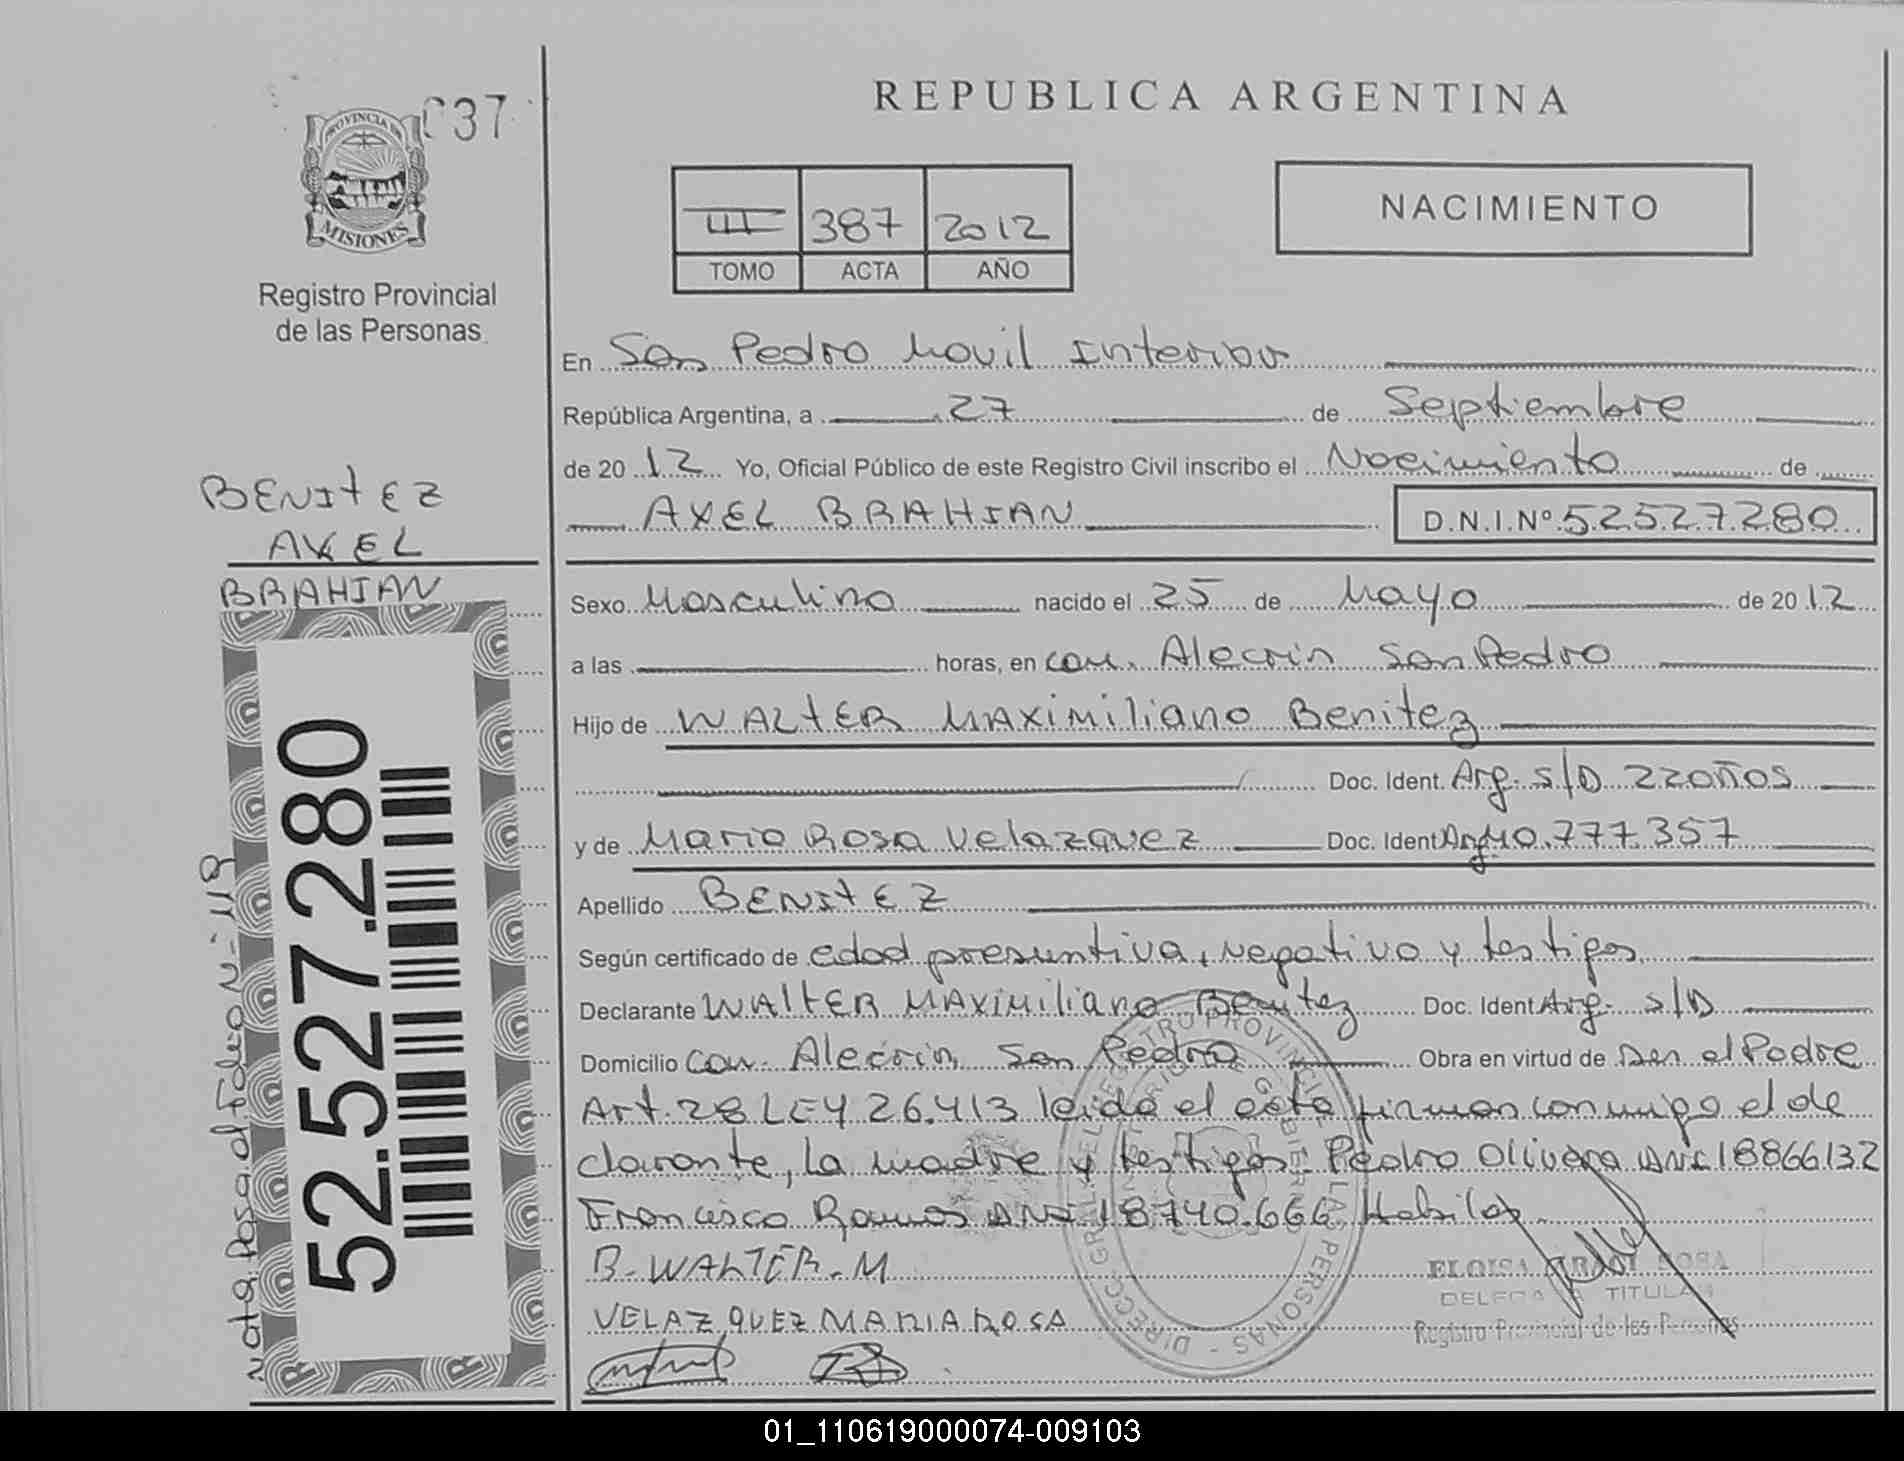 037
PROVINCIA DE
MISIONES
Registro Provincial
de las Personas
REPUBLICA ARGENTINA
III 387 2012
TOMO ACTA AÑO
NACIMIENTO
En San Pedro Movil Interior
República Argentina, a 27 de Septiembre
de 2012 Yo, Oficial Público de este Registro Civil inscribo el Nacimiento de
AXEL BRAHIAN D.N.I.Nº 52527280
BENITEZ
AXEL
BRAHIAN
52.527.280
Nota Pasa al Folio Nº 119
Sexo Masculino nacido el 25 de Mayo de 2012
a las horas, en com. Alecrin San Pedro
Hijo de WALTER MAXIMILIANO Benitez
Doc. Ident. Arg. s/D 22 años
y de Maria Rosa Velazquez Doc. Ident Arg 40.777.357
Apellido BENITEZ
Según certificado de edad presuntiva, negativo y testigos
Declarante WALTER MAXIMILIANO Benitez Doc. Ident Arg. s/D
Domicilio com. Alecrin San Pedro Obra en virtud de ser el Padre
Art. 28 LEY 26.413 leida el acta firman conmigo el de
clarante, la madre y testigos Pedro Olivera DNI 18866132
Francisco Ramos DNI 18740.666
B. WALTER. M
VELAZQUEZ MARIA ROSA
ELOISA ROSA
TITULAR
Registro Provincial de las Personas
01_110619000074-009103